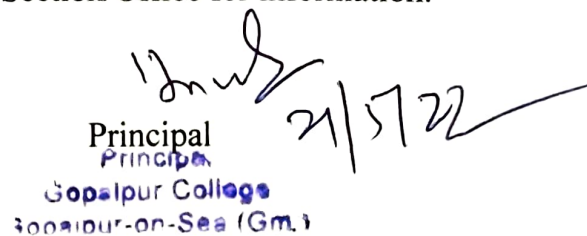 Section Office for information.
21/5/22
Principal
Principal
Gopalpur College
Gopalpur-on-Sea (Gm.)